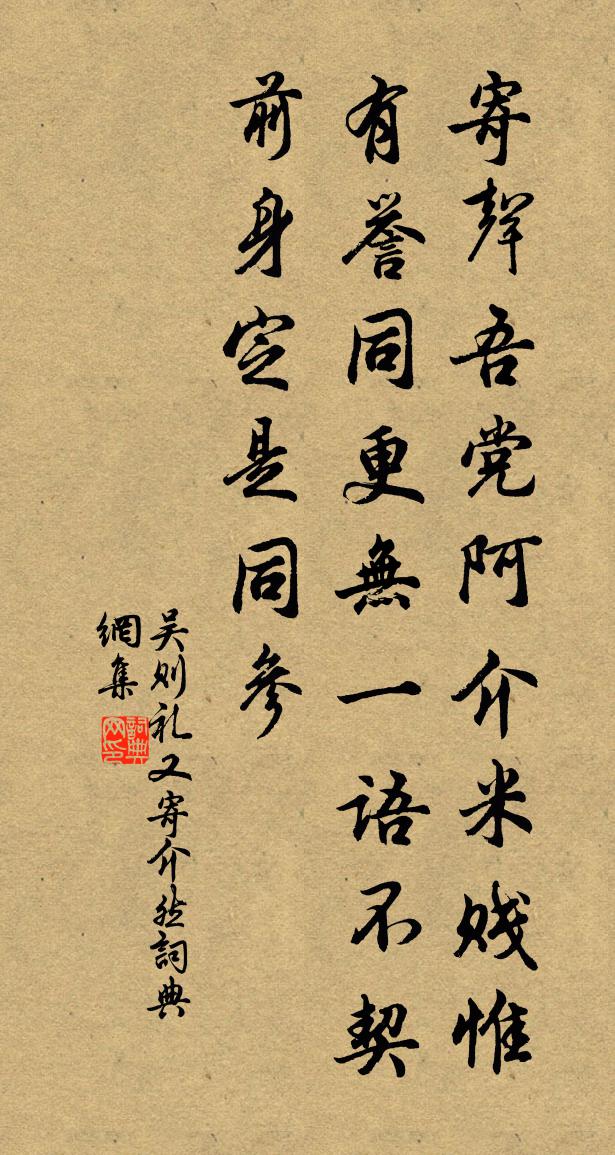 寄聲吾党阿介米贱惟
有誉同更無一语不契
前身定是同參
吴则礼又寄介然詞典
網集
詞典
网印